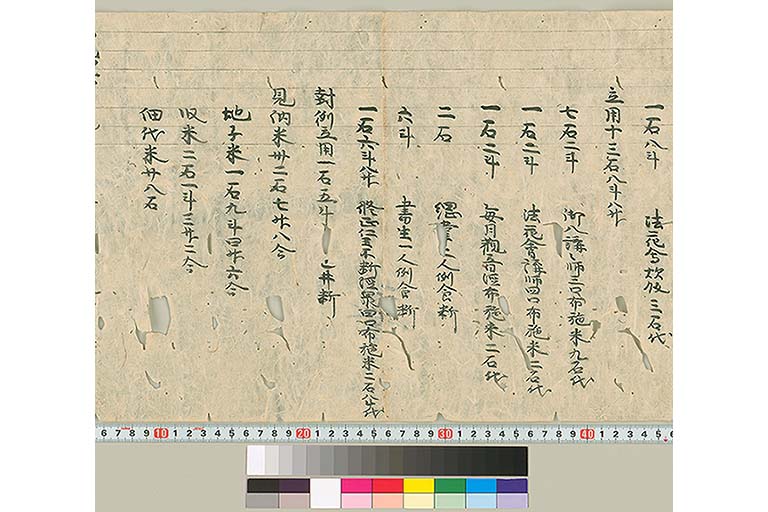 一石八斗 法花会 三石代
立用十三石八斗八升
七石二斗 御八講々師三口布施米九石代
一石二斗 法花會講師四口布施米二石代
一石二斗 毎月観音経布施米二石代
二石 綱掌二人例食料
六斗 書生一人例食料
一石六斗八升 修正 不断経衆四口布施米二石八斗代
封例立用一石五斗 井料
見納米卅二石七升八合
地子米一石九斗四升六合
収米二石一斗三升二合
佃代米廿八石
6 7 8 9 10 1 2 3 4 5 6 7 8 9 20 1 2 3 4 5 6 7 8 9 30 1 2 3 4 5 6 7 8 9 40 1 2 3 4 5 6